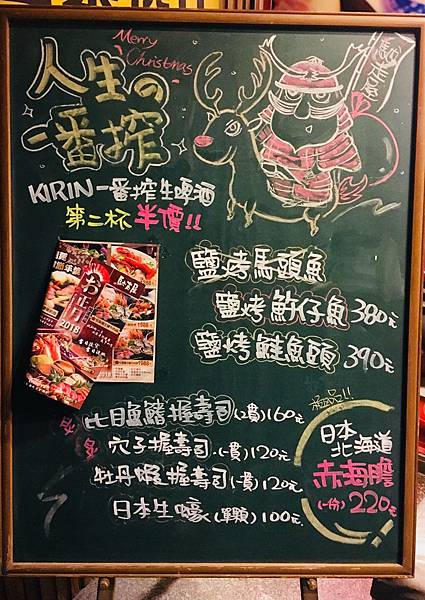 Merry
Christmas
人生の
一番搾
KIRIN一番搾生啤酒
第二杯半價!!
鹽烤馬頭魚
鹽烤魽仔魚380元
鹽烤鮭魚頭390元
比目魚鰭握壽司(2貫)160元
穴子握壽司(一貫)120元
牡丹蝦握壽司(一貫)120元
日本生蠔(單顆)100元
極品!!
日本
北海道
赤海膽
(一份)220元
お正月
2018